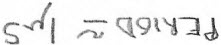 PERIOD ≈ 1μS